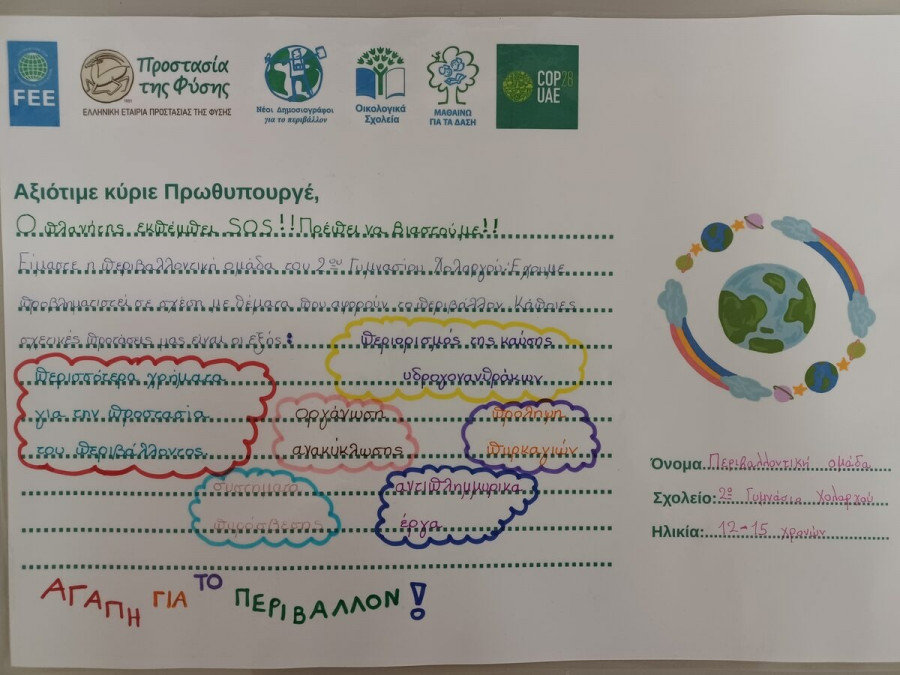 FEE
Προστασία
της Φύσης
1951
ΕΛΛΗΝΙΚΗ ΕΤΑΙΡΙΑ ΠΡΟΣΤΑΣΙΑΣ ΤΗΣ ΦΥΣΗΣ
Νέοι Δημοσιογράφοι
για το περιβάλλον
Οικολογικά
Σχολεία
ΜΑΘΑΙΝΩ
ΓΙΑ ΤΑ ΔΑΣΗ
COP28
UAE
Αξιότιμε κύριε Πρωθυπουργέ,
Ο πλανήτης εκπέμπει SOS!! Πρέπει να βιαστούμε!!
Είμαστε η περιβαλλοντική ομάδα του 2ου Γυμνασίου Χολαργού. Έχουμε
προβληματιστεί σε σχέση με θέματα που αφορούν το περιβάλλον. Κάποιες
σχετικές προτάσεις μας είναι οι εξής:
περιορισμός της καύσης
υδρογονανθράκων
περισσότερα χρήματα
για την προστασία
του περιβάλλοντος
οργάνωση
ανακύκλωσης
πρόληψη
πυρκαγιών
συστήματα
πυρόσβεσης
αντιπλημμυρικα
έργα
ΑΓΑΠΗ ΓΙΑ ΤΟ ΠΕΡΙΒΑΛΛΟΝ!
Όνομα: Περιβαλλοντική ομάδα
Σχολείο: 2ο Γυμνάσιο Χολαργού
Ηλικία: 12-15 χρονών